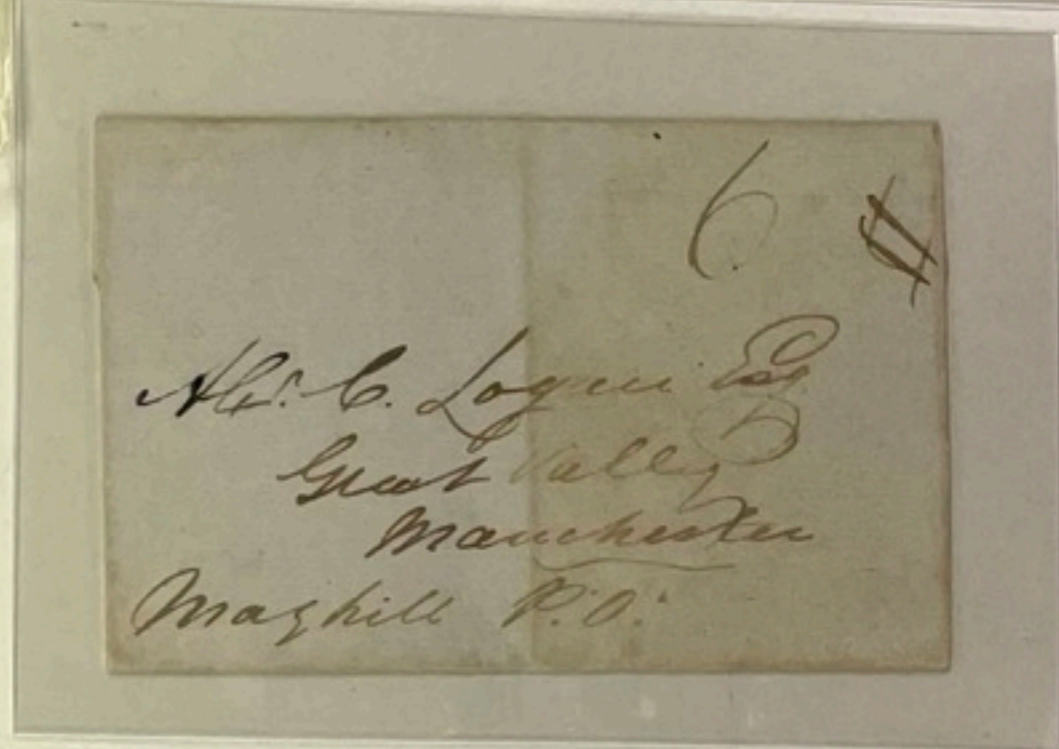 6
Alex. C. Logan Esq
Great Valley
Manchester
Mayhill P.O.